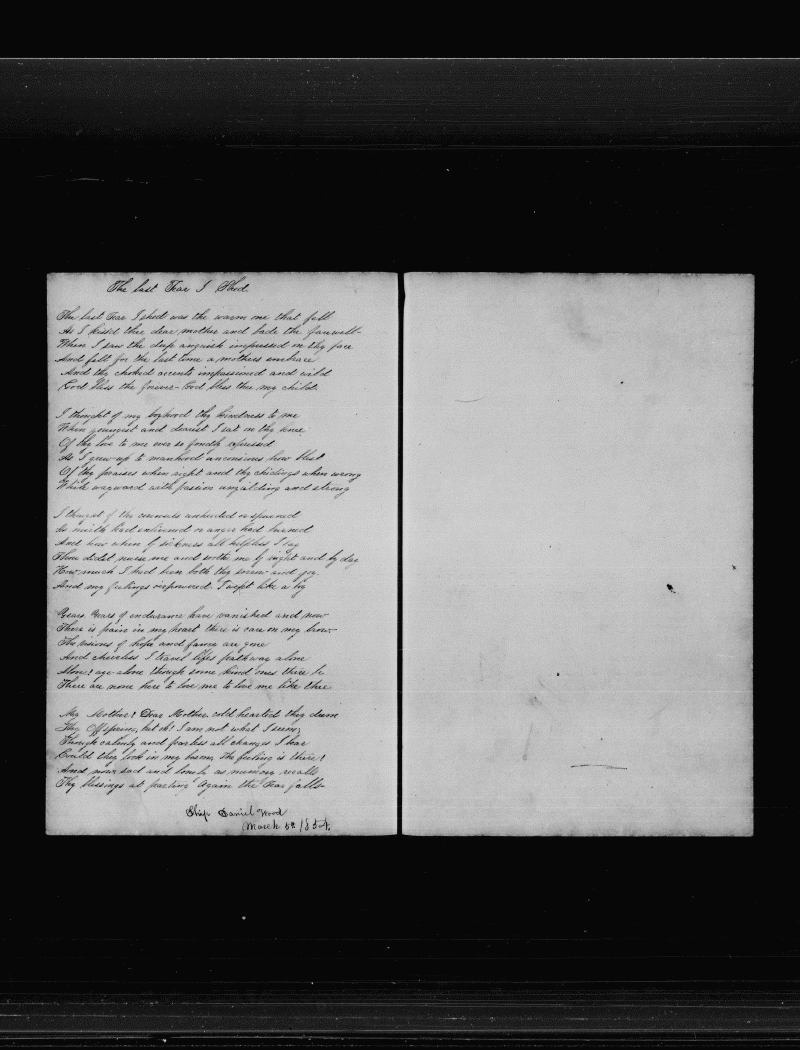 The last Tear I Shed
The last Tear I shed was the warm one that fell
As I kissed thee dear mother and bade the farewell
When I saw the deep anguish impressed on thy face
And felt for the last time a mothers embrace
And thy choked accents impassioned and wild
God bless the forever - God bless thee my child
I thought of my boyhood thy kindness to me
When youngest and dearest I sat on thy knee
Of thy love to me ever so fondly expressed
As I grew up to manhood unconscious how blest
Of thy praises when right and thy chidings when wrong
While wayward with passion unyielding and strong
I thought of the counsels unheeded or spurned
As mirth had enlivened or anger had burned
And how when by sickness all helpless I lay
Thou didst nurse me and soothe me by night and by day
How much I had been both thy sorrow and joy
And my feelings oerpowered I wept like a boy
Years Years of endurance have vanished and now
There is pain in my heart there is care on my brow
The visions of hope and fancy are gone
And cheerless I travel lifes pathway alone
Alone! aye alone though some kind ones there be
There are none here to love me to love me like thee
My Mother! Dear Mother. cold hearted they deem
Thy Offspring, but oh! I am not what I seem,
Though calmly and fearless all changes I bear
Could they look in my bosom, the feeling is there!
And now sad and lonely as memory recalls
Thy blessings at parting Again the Tear falls
Ship Daniel Wood
March 5th 1854.